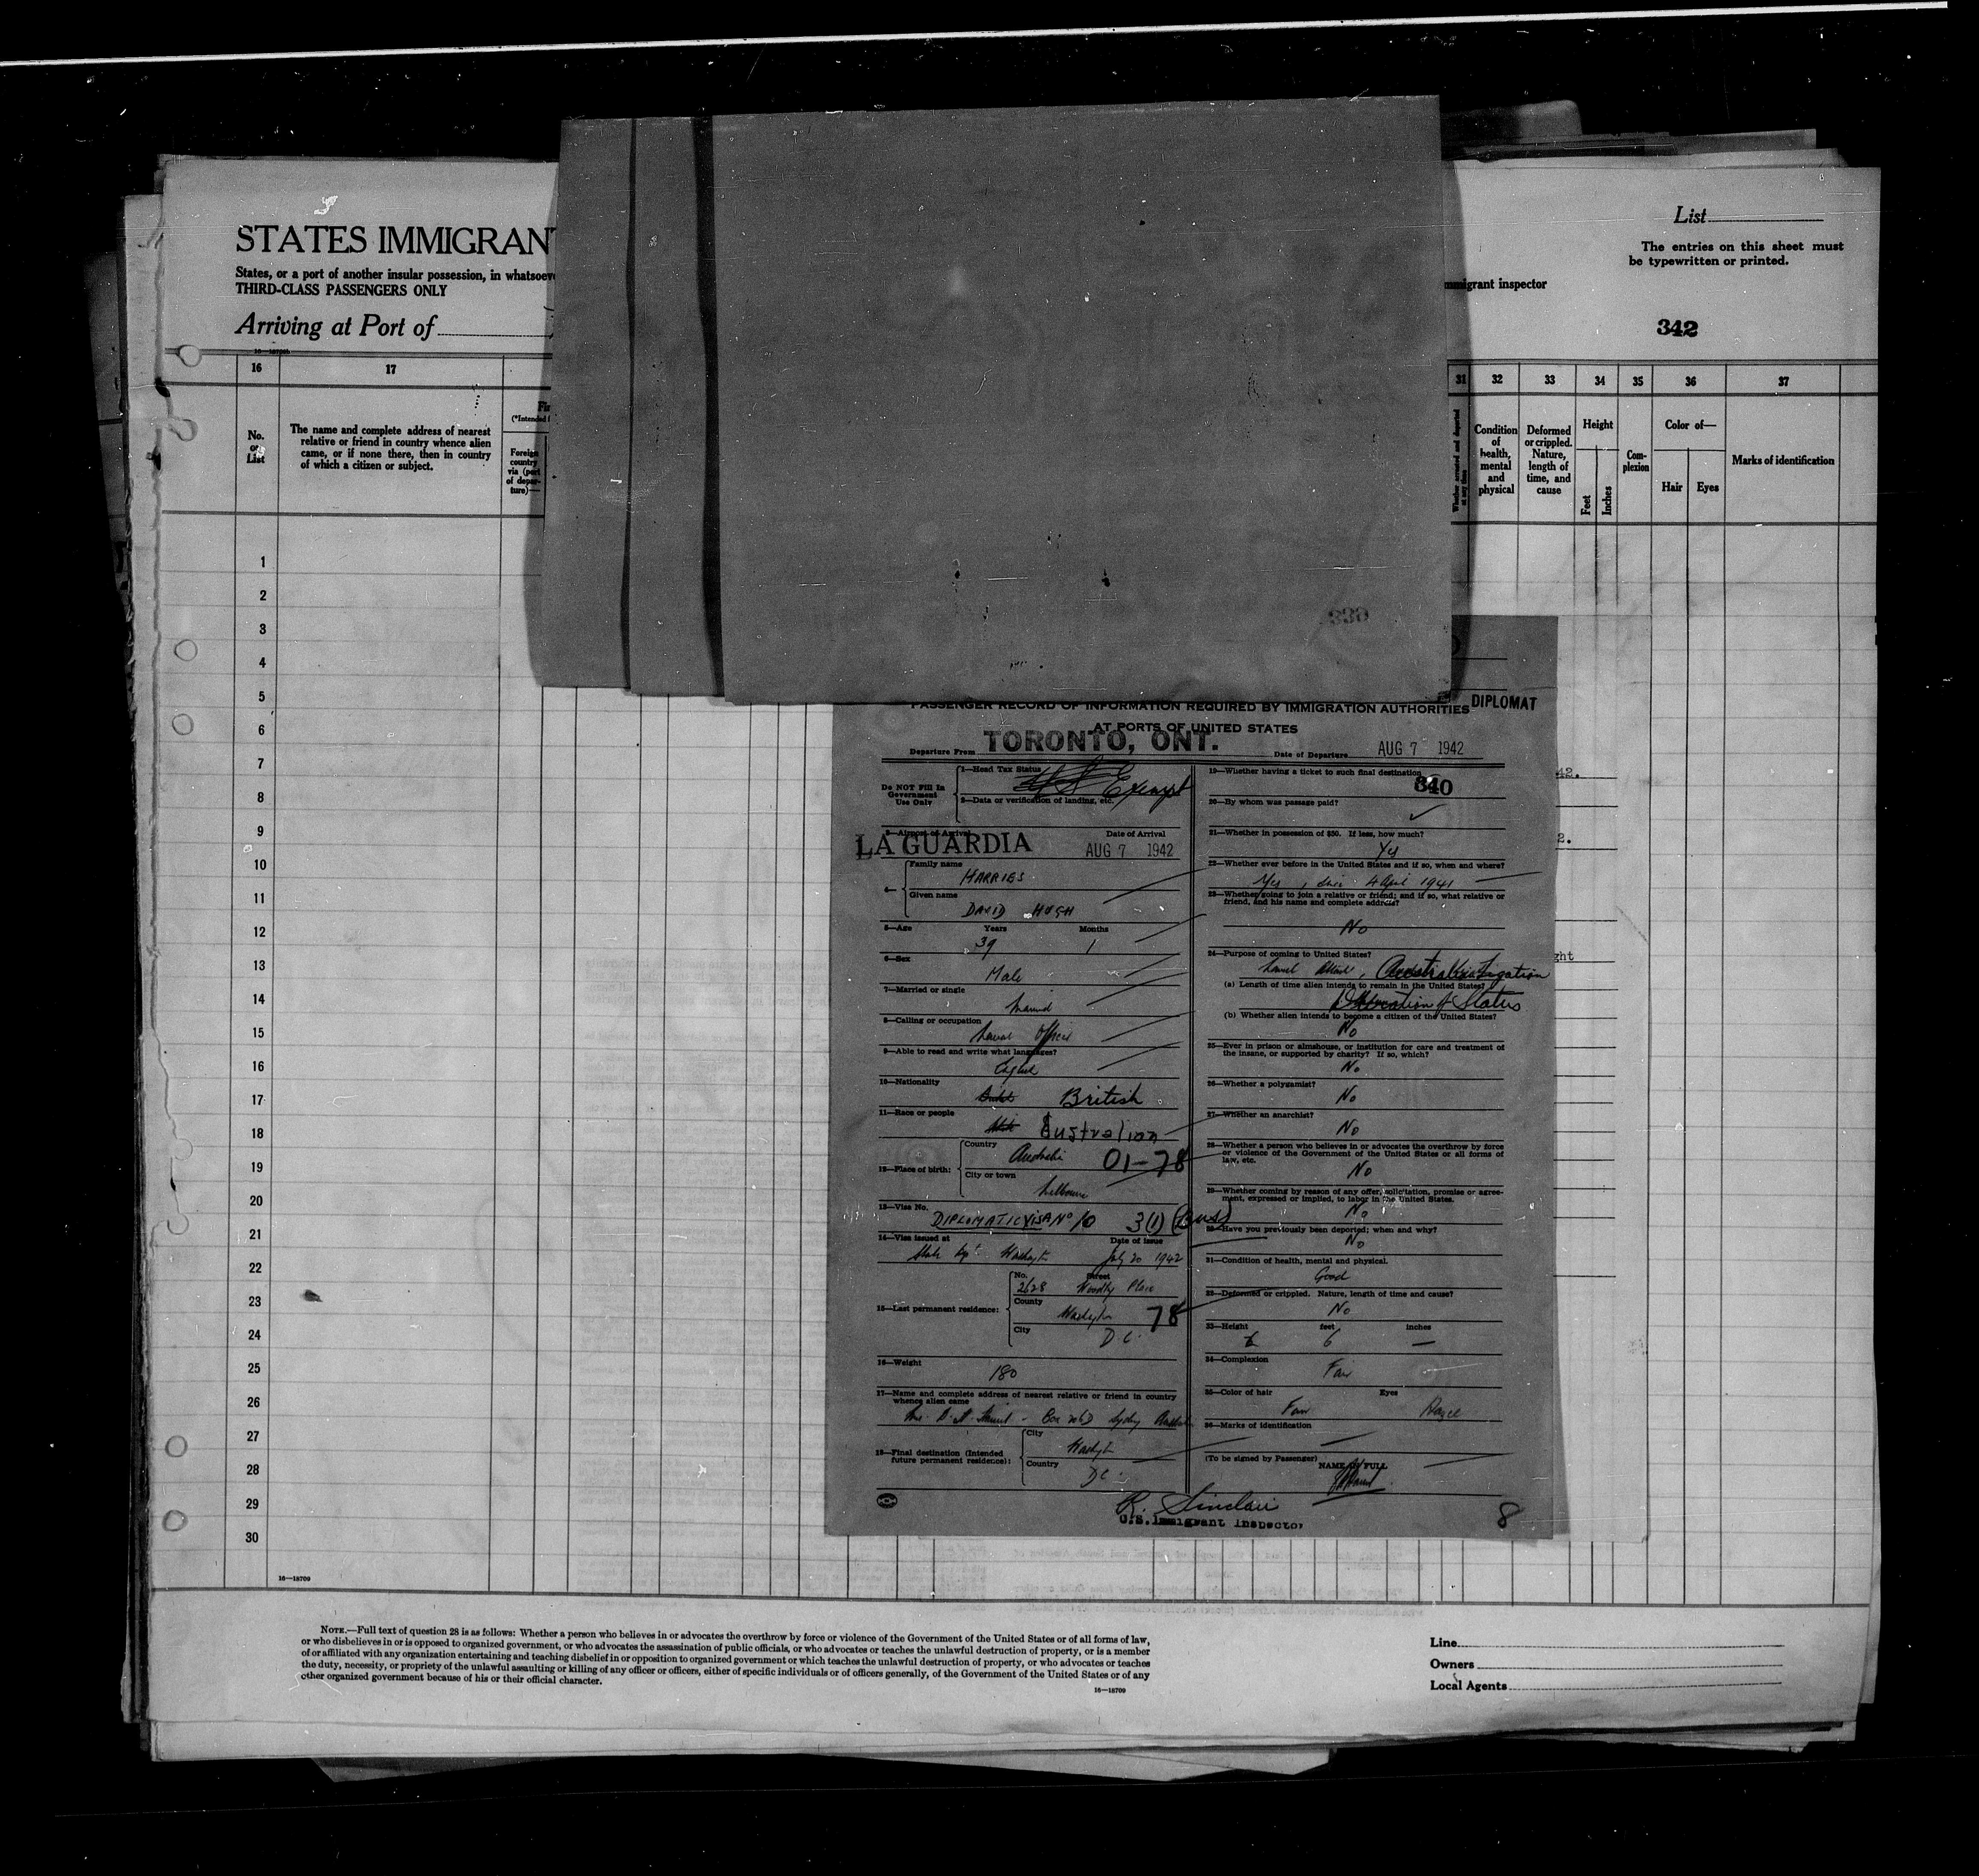 STATES IMMIGRANT
States, or a port of another insular possession, in whatsoev
THIRD-CLASS PASSENGERS ONLY
Arriving at Port of
List
The entries on this sheet must
be typewritten or printed.
mmigrant inspector
342
16 17 31 32 33 34 35 36 37
No.
on
List
The name and complete address of nearest
relative or friend in country whence alien
came, or if none there, then in country
of which a citizen or subject.
(*Intended
Foreign
country
via (port
of depar-
ture)—
Whether arrested and deported
at any time
Condition
of
health,
mental
and
physical
Deformed
or crippled.
Nature,
length of
time, and
cause
Height
Feet
Inches
Com-
plexion
Color of—
Hair Eyes
Marks of identification
1
2
3
4
5
6
7
8
9
10
11
12
13
14
15
16
17
18
19
20
21
22
23
24
25
26
27
28
29
30
330
DIPLOMAT
PASSENGER RECORD OF INFORMATION REQUIRED BY IMMIGRATION AUTHORITIES
AT PORTS OF UNITED STATES
Departure From TORONTO, ONT. Date of Departure AUG 7 1942
Do NOT Fill In
Government
Use Only
1—Head Tax Status Exempt
2—Data or verification of landing, etc.
3—Airport of Arrival Date of Arrival
LA GUARDIA AUG 7 1942
4—
Family name
HARRIES
Given name
DAVID HUGH
5—Age Years Months
39 1
6—Sex
Male
7—Married or single
Married
8—Calling or occupation
Naval Officer
9—Able to read and write what languages?
English
10—Nationality
British
11—Race or people
Australian
12—Place of birth:
Country
Australia 01-78
City or town
Melbourne
13—Visa No.
DIPLOMATIC VISA No 10 3(1) (Bus)
14—Visa issued at Date of issue
State Dpt Washgtn July 20 1942
15—Last permanent residence:
No. Street
2628 Woodley Place
County
Washgtn 78
City
D.C.
16—Weight
180
17—Name and complete address of nearest relative or friend in country
whence alien came
Sydney Australia
18—Final destination (Intended
future permanent residence):
City
Washgtn
Country
DC.
19—Whether having a ticket to such final destination
340
20—By whom was passage paid?
21—Whether in possession of $50. If less, how much?
Yes
22—Whether ever before in the United States and if so, when and where?
Yes, since 4 April 1941
23—Whether going to join a relative or friend; and if so, what relative or
friend, and his name and complete address?
No
24—Purpose of coming to United States?
Naval Attaché, Australian Legation
(a) Length of time alien intends to remain in the United States?
Duration of Status
(b) Whether alien intends to become a citizen of the United States?
No
25—Ever in prison or almshouse, or institution for care and treatment of
the insane, or supported by charity? If so, which?
No
26—Whether a polygamist?
No
27—Whether an anarchist?
No
28—Whether a person who believes in or advocates the overthrow by force
or violence of the Government of the United States or all forms of
law, etc.
No
29—Whether coming by reason of any offer, solicitation, promise or agree-
ment, expressed or implied, to labor in the United States.
No
30—Have you previously been deported; when and why?
No
31—Condition of health, mental and physical.
Good
32—Deformed or crippled. Nature, length of time and cause?
No
33—Height feet inches
6 —
34—Complexion
Fair
35—Color of hair Eyes
Fair Hazel
36—Marks of identification
—
(To be signed by Passenger) NAME IN FULL
R. Sinclair
U.S. Immigrant Inspector
8
42.
2.
ght
16—18709
NOTE.—Full text of question 28 is as follows: Whether a person who believes in or advocates the overthrow by force or violence of the Government of the United States or of all forms of law,
or who disbelieves in or is opposed to organized government, or who advocates the assassination of public officials, or who advocates or teaches the unlawful destruction of property, or is a member
of or affiliated with any organization entertaining and teaching disbelief in or opposition to organized government or which teaches the unlawful destruction of property, or who advocates or teaches
the duty, necessity, or propriety of the unlawful assaulting or killing of any officer or officers, either of specific individuals or of officers generally, of the Government of the United States or of any
other organized government because of his or their official character.
16—18709
Line
Owners
Local Agents